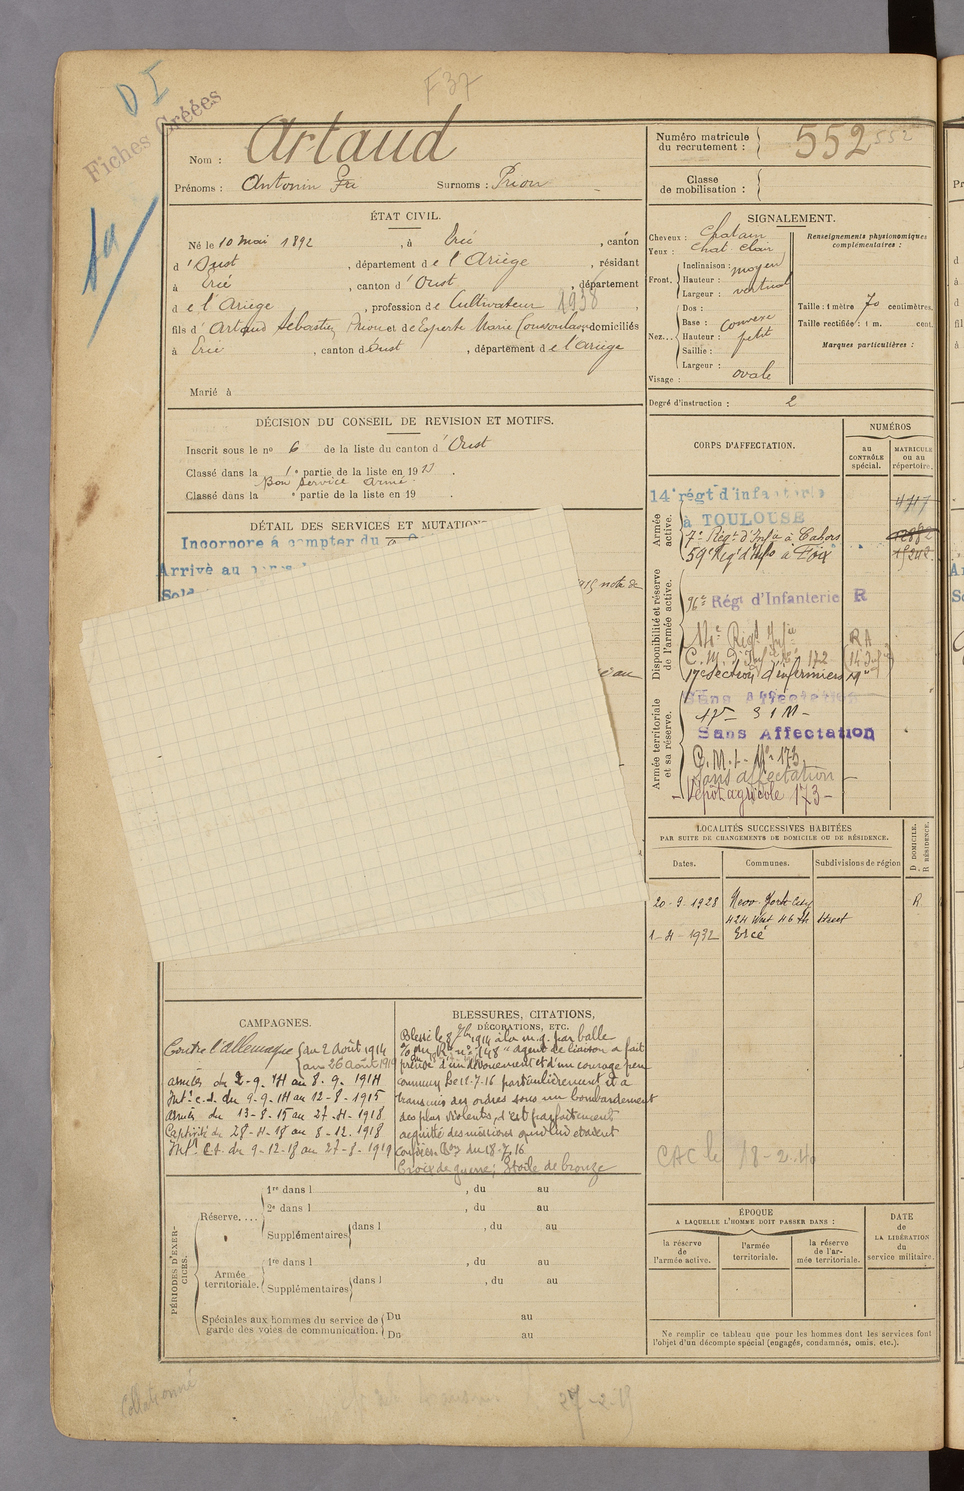 D I
F 37
Fiches Créées
Nom : Artaud
Prénoms : Antonin Surnoms : Prion
Numéro matricule du recrutement : 552 552
Classe de mobilisation :
ÉTAT CIVIL.
Né le 10 mai 1892, à Ercé, canton
d'Oust, département de l'Ariège, résidant
à Ercé, canton d'Oust, département
de l'Ariège, profession de Cultivateur 1938
fils d'Artaud Sébastien, Prion et de Esperte Marie domiciliés
à Ercé, canton d'Oust, département de l'Ariège
Marié à
SIGNALEMENT.
Cheveux : Chatain
Yeux : Chat. Clair
Front. Inclinaison : moyen
Hauteur : vertical
Largeur :
Nez... Dos :
Base : convexe
Hauteur : petit
Saillie :
Largeur :
Visage : ovale
Renseignements physionomiques complémentaires :
Taille : 1 mètre 70 centimètres.
Taille rectifiée : 1 m. cent.
Marques particulières :
Degré d'instruction : 2
DÉCISION DU CONSEIL DE REVISION ET MOTIFS.
Inscrit sous le nº 6 de la liste du canton d'Oust
Classé dans la 1e partie de la liste en 1913.
Bon Service armé.
Classé dans la e partie de la liste en 19 .
DÉTAIL DES SERVICES ET MUTATIONS
Incorporé à compter du
Arrivé au
Sold
1915 note de
CORPS D'AFFECTATION.
NUMÉROS
au CONTRÔLE spécial.
MATRICULE ou au répertoire.
Armée active.
14e régt d'infanterie
à TOULOUSE
7e Régt d'Infie à Cahors
59e Régt d'Info à Foix
4717
15242
Disponibilité et réserve de l'armée active.
96e Régt d'Infanterie R
R A
C. M. d'Inf 172
17e Section d'infirmiers
Armée territoriale et sa réserve.
Sans Affectation
Sans Affectation
C. M. I. Nº 173
Sans affectation
Dépôt agricole 173 -
LOCALITÉS SUCCESSIVES HABITÉES
PAR SUITE DE CHANGEMENTS DE DOMICILE OU DE RÉSIDENCE.
Dates. Communes. Subdivisions de région
D DOMICILE. R RÉSIDENCE.
20-9-1928 New-York City R
424 West 46 th Street
1-4-1932 Ercé
CAMPAGNES.
Contre l'Allemagne { du 2 Août 1914
au 26 août 1919
armées du 2-9-14 au 8-9-1914
Intr c.d. du 9-9-14 au 12-8-1915
armées du 13-8-15 au 27-4-1918
Captivité du 28-4-18 au 8-12-1918
Intr C.d. du 9-12-18 au 27-8-1919
BLESSURES, CITATIONS,
DÉCORATIONS, ETC.
Blessé le 8 7bre 1914 à la m.g. par balle
nº 148 "agent de liaison a fait
preuve d'un dévouement et d'un courage peu
commun, le 15-7-16 particulièrement il a
transmis des ordres sous un bombardement
des plus violents, s'est parfaitement
acquitté des missions qui lui étaient
confiées du 18-7-16
Croix de guerre, Étoile de bronze
CAC le 18-2-40
PÉRIODES D'EXERCICES.
Réserve....
1re dans l , du au
2e dans l , du au
Supplémentaires dans l , du au
Armée territoriale.
1re dans l , du au
Supplémentaires dans l , du au
Spéciales aux hommes du service de garde des voies de communication.
Du au
Du au
ÉPOQUE
A LAQUELLE L'HOMME DOIT PASSER DANS :
la réserve de l'armée active.
l'armée territoriale.
la réserve de l'armée territoriale.
DATE de LA LIBÉRATION du service militaire.
Ne remplir ce tableau que pour les hommes dont les services font
l'objet d'un décompte spécial (engagés, condamnés, omis, etc.).
Collationné